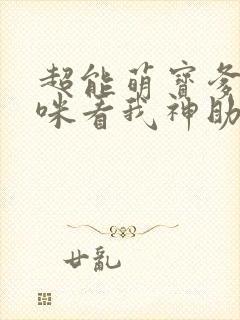 超能萌寶爹
咪看我神助
廿亂